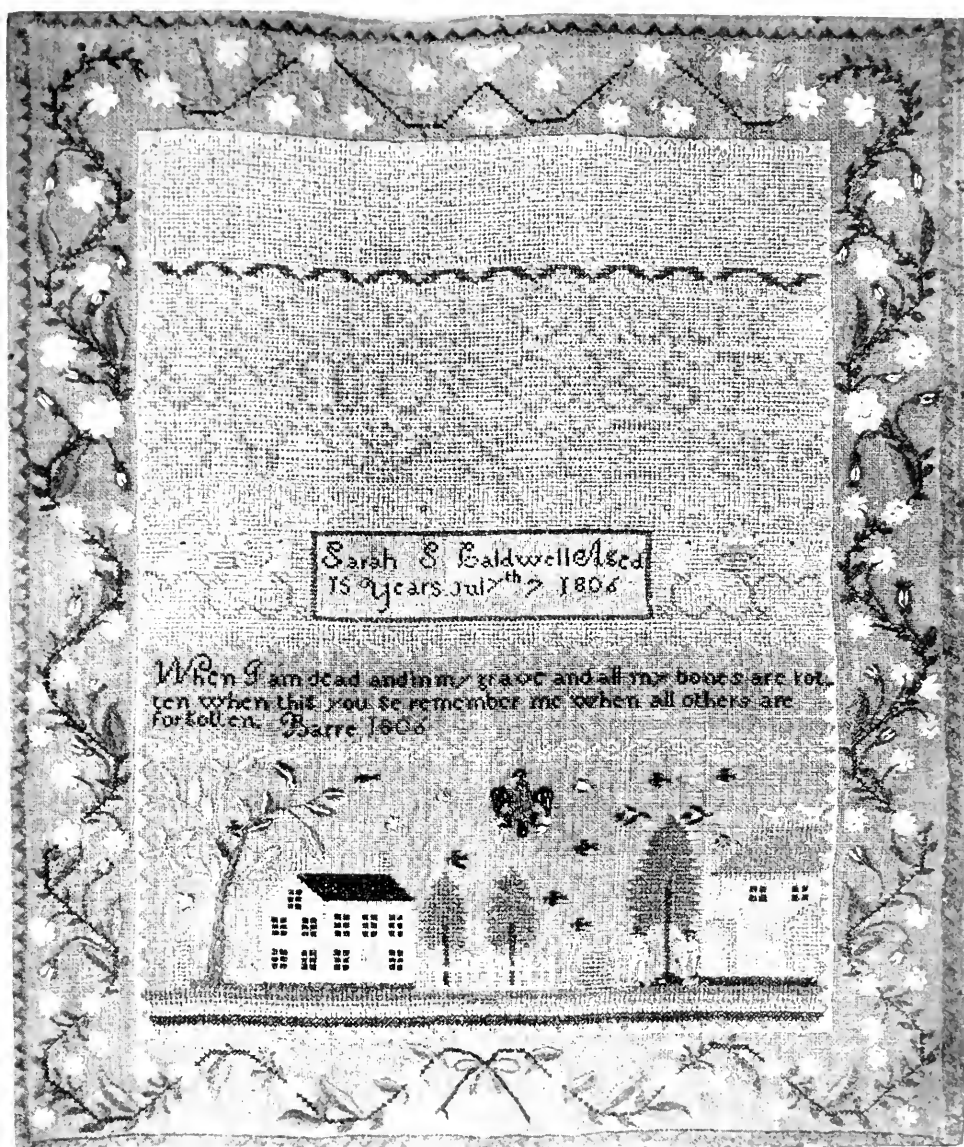 Sarah S Caldwell Aged
15 Years July th 7 1806
When I am dead and in my grave and all my bones are rot
ten when this you se remember me when all others are
forgotten. Barre 1806